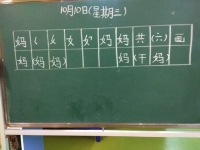 10月10日(星期三)
妈 ㄑ 女 女 妈 妈 妈 共 (六) 画
妈 (妈 妈) 妈 (干 妈)